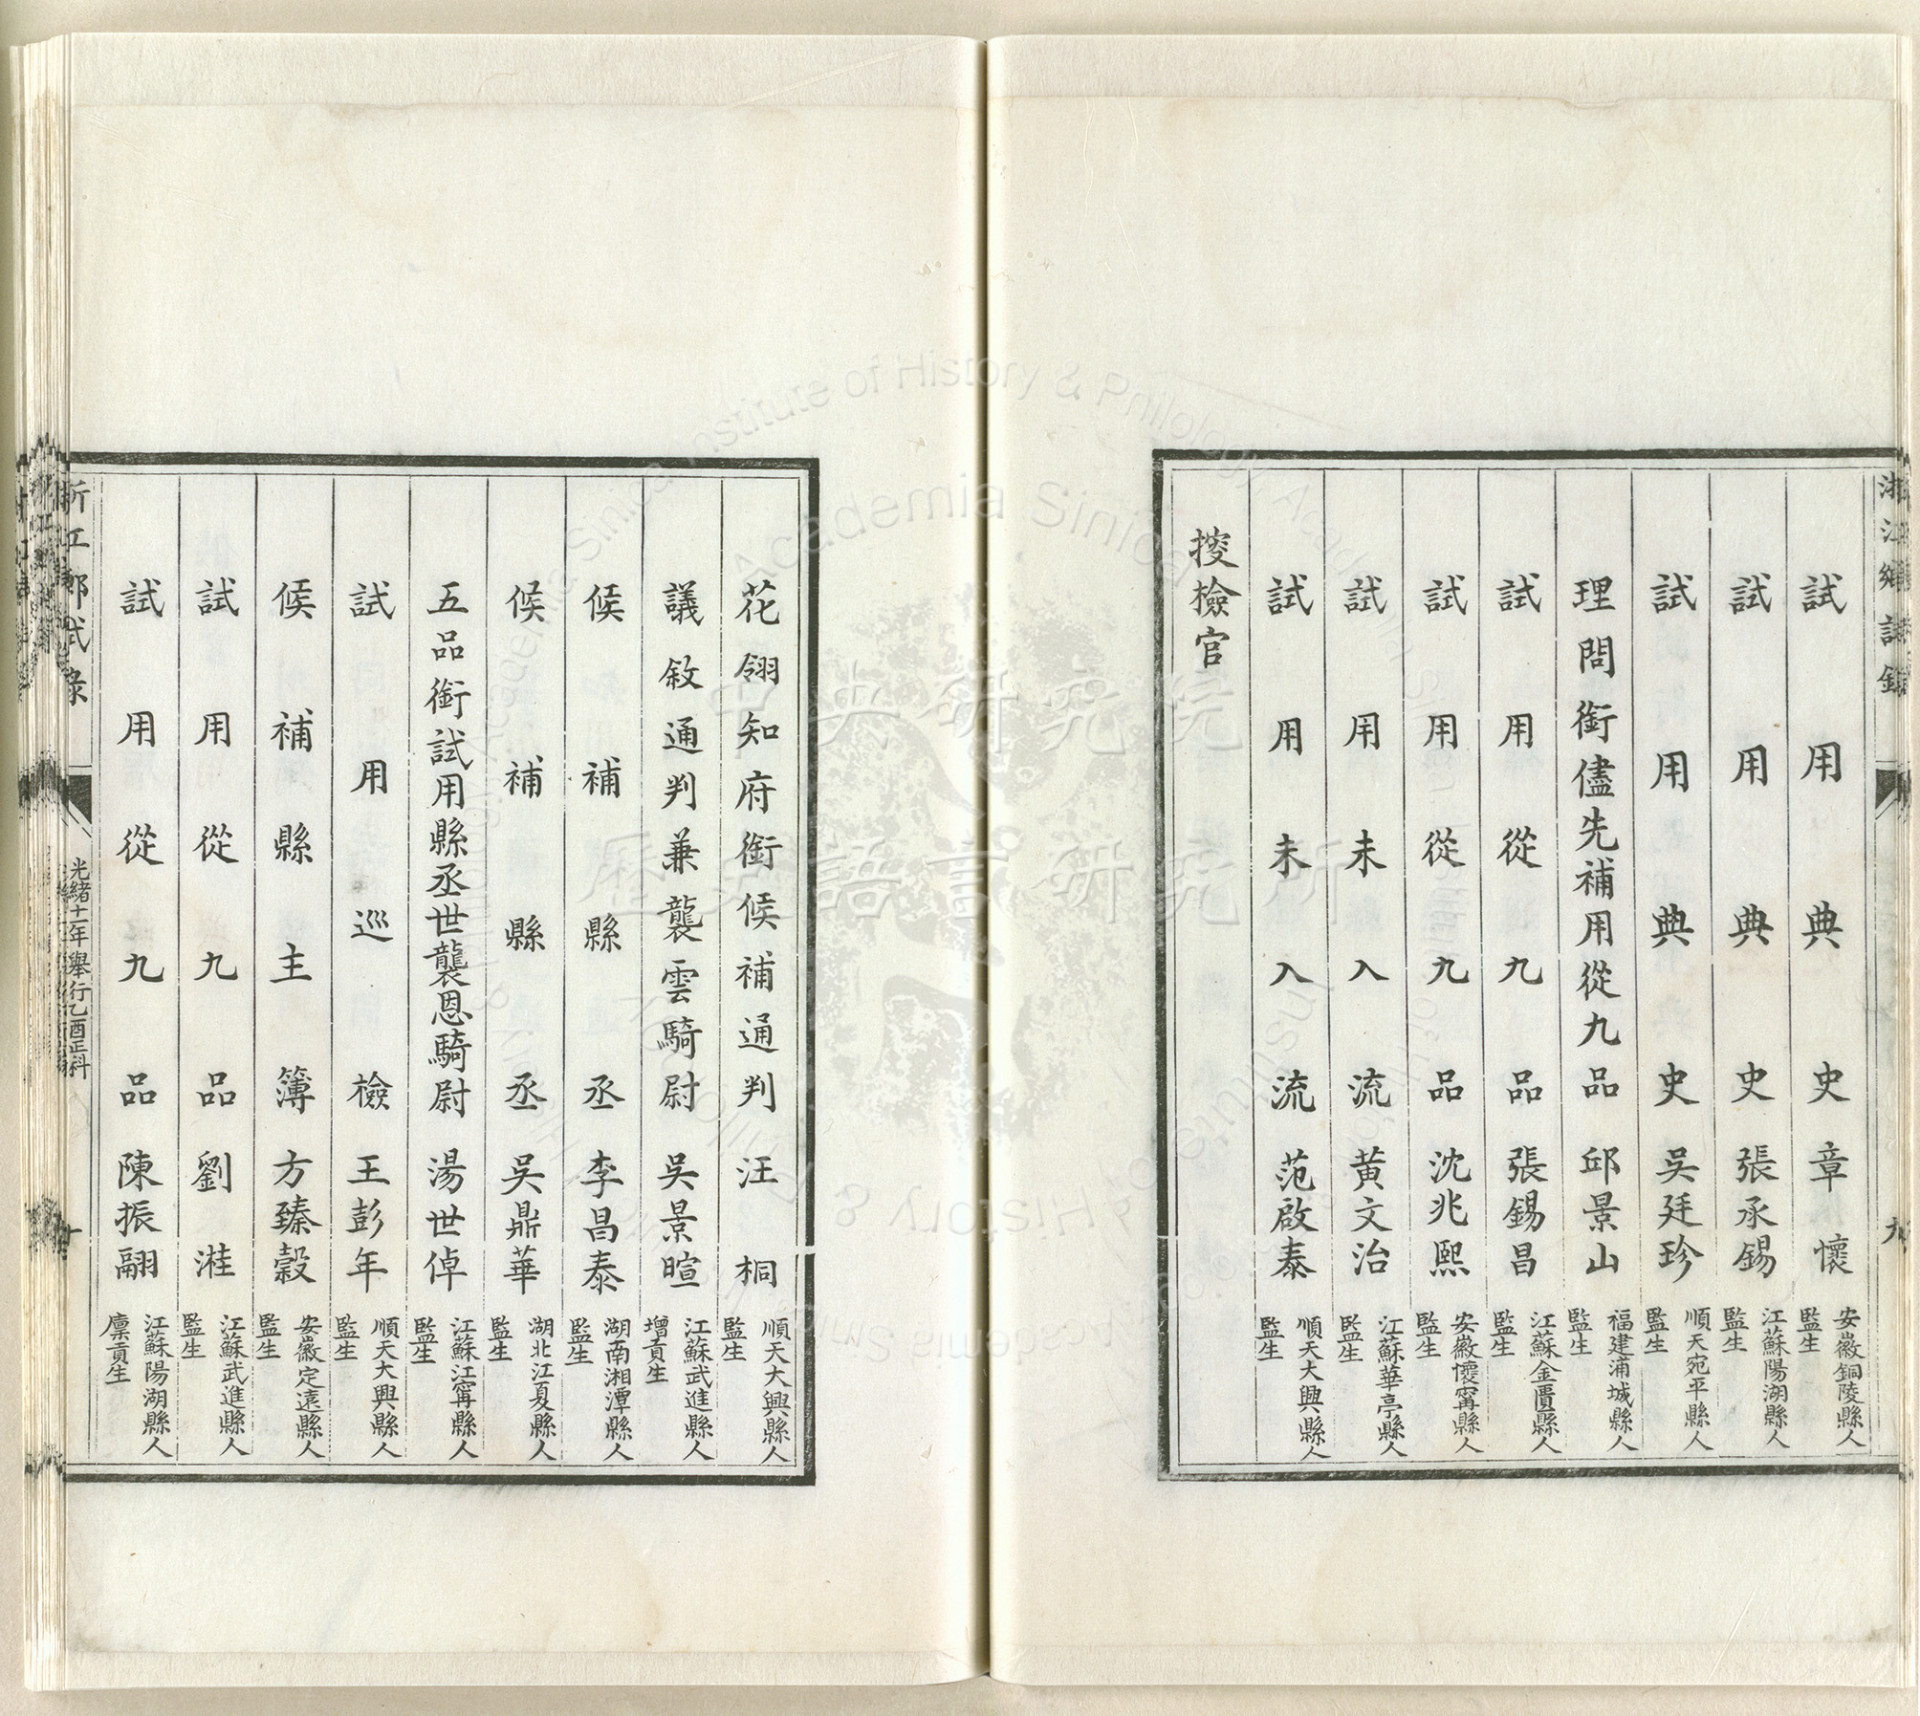 浙江鄉試錄
九
試用典史章懷 安徽銅陵縣人 監生
試用典史張承錫 江蘇陽湖縣人 監生
試用典史吳廷珍 順天宛平縣人 監生
理問銜儘先補用從九品邱景山 福建浦城縣人 監生
試用從九品張錫昌 江蘇金匱縣人 監生
試用從九品沈兆熙 安徽懷甯縣人 監生
試用未入流黃文治 江蘇華亭縣人 監生
試用未入流范啟泰 順天大興縣人 監生
搜檢官
花翎知府銜候補通判汪桐 順天大興縣人 監生
議敘通判兼襲雲騎尉吳景暄 江蘇武進縣人 增貢生
候補縣丞李昌泰 湖南湘潭縣人 監生
候補縣丞吳鼎華 湖北江夏縣人 監生
五品銜試用縣丞世襲恩騎尉湯世倬 江蘇江甯縣人 監生
試用巡檢王彭年 順天大興縣人 監生
候補縣主簿方臻穀 安徽定遠縣人 監生
試用從九品劉溎 江蘇武進縣人 監生
試用從九品陳振翮 江蘇陽湖縣人 廩貢生
浙江鄉試錄
光緒十一年舉行乙酉正科
十
Institute of History & Philology, Academia Sinica
Academia Sinica
中央研究院
歷史語言研究所